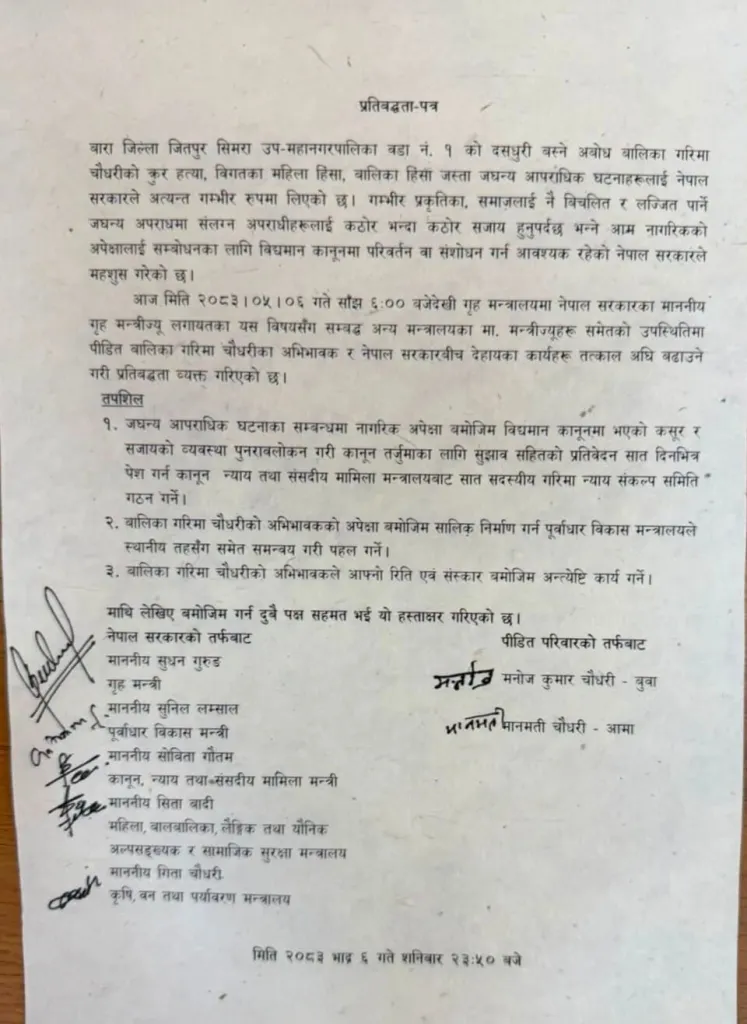 प्रतिबद्धता-पत्र
बारा जिल्ला जितपुर सिमरा उप-महानगरपालिका वडा नं. १ को दसधुरी बस्ने अबोध बालिका गरिमा
चौधरीको कुर हत्या, बिगतका महिला हिंसा, बालिका हिंसा जस्ता जघन्य आपराधिक घटनाहरूलाई नेपाल
सरकारले अत्यन्त गम्भीर रुपमा लिएको छ। गम्भीर प्रकृतिका, समाजलाई नै बिचलित र लज्जित पार्ने
जघन्य अपराधमा संलग्न अपराधीहरूलाई कठोर भन्दा कठोर सजाय हुनुपर्दछ भन्ने आम नागरिकको
अपेक्षालाई सम्बोधनका लागि विद्यमान कानूनमा परिवर्तन वा संशोधन गर्न आवश्यक रहेको नेपाल सरकारले
महशुस गरेको छ।
आज मिति २०८३।०५।०६ गते साँझ ६:०० बजेदेखी गृह मन्त्रालयमा नेपाल सरकारका माननीय
गृह मन्त्रीज्यू लगायतका यस विषयसँग सम्बद्ध अन्य मन्त्रालयका मा. मन्त्रीज्यूहरू समेतको उपस्थितिमा
पीडित बालिका गरिमा चौधरीका अभिभावक र नेपाल सरकारबीच देहायका कार्यहरू तत्काल अघि बढाउने
गरी प्रतिबद्धता व्यक्त गरिएको छ।
तपशिल
१. जघन्य आपराधिक घटनाका सम्बन्धमा नागरिक अपेक्षा बमोजिम विद्यमान कानूनमा भएको कसूर र
सजायको व्यवस्था पुनरावलोकन गरी कानून तर्जुमाका लागि सुझाव सहितको प्रतिवेदन सात दिनभित्र
पेश गर्न कानून न्याय तथा संसदीय मामिला मन्त्रालयबाट सात सदस्यीय गरिमा न्याय संकल्प समिति
गठन गर्ने।
२. बालिका गरिमा चौधरीको अभिभावकको अपेक्षा बमोजिम सालिक निर्माण गर्न पूर्वाधार विकास मन्त्रालयले
स्थानीय तहसँग समेत समन्वय गरी पहल गर्ने।
३. बालिका गरिमा चौधरीको अभिभावकले आफ्नो रिति एवं संस्कार बमोजिम अन्त्येष्टि कार्य गर्ने।
माथि लेखिए बमोजिम गर्न दुबै पक्ष सहमत भई यो हस्ताक्षर गरिएको छ।
नेपाल सरकारको तर्फबाट
माननीय सुधन गुरुङ
गृह मन्त्री
माननीय सुनिल लम्साल
पूर्वाधार विकास मन्त्री
माननीय सोविता गौतम
कानून, न्याय तथा संसदीय मामिला मन्त्री
माननीय सिता बादी
महिला, बालबालिका, लैङ्गिक तथा यौनिक
अल्पसङ्ख्यक र सामाजिक सुरक्षा मन्त्रालय
माननीय गिता चौधरी
कृषि, वन तथा पर्यावरण मन्त्रालय
पीडित परिवारको तर्फबाट
मनोज कुमार चौधरी - बुवा
मानमती मानमती चौधरी - आमा
मिति २०८३ भाद्र ६ गते शनिबार २३:५० बजे